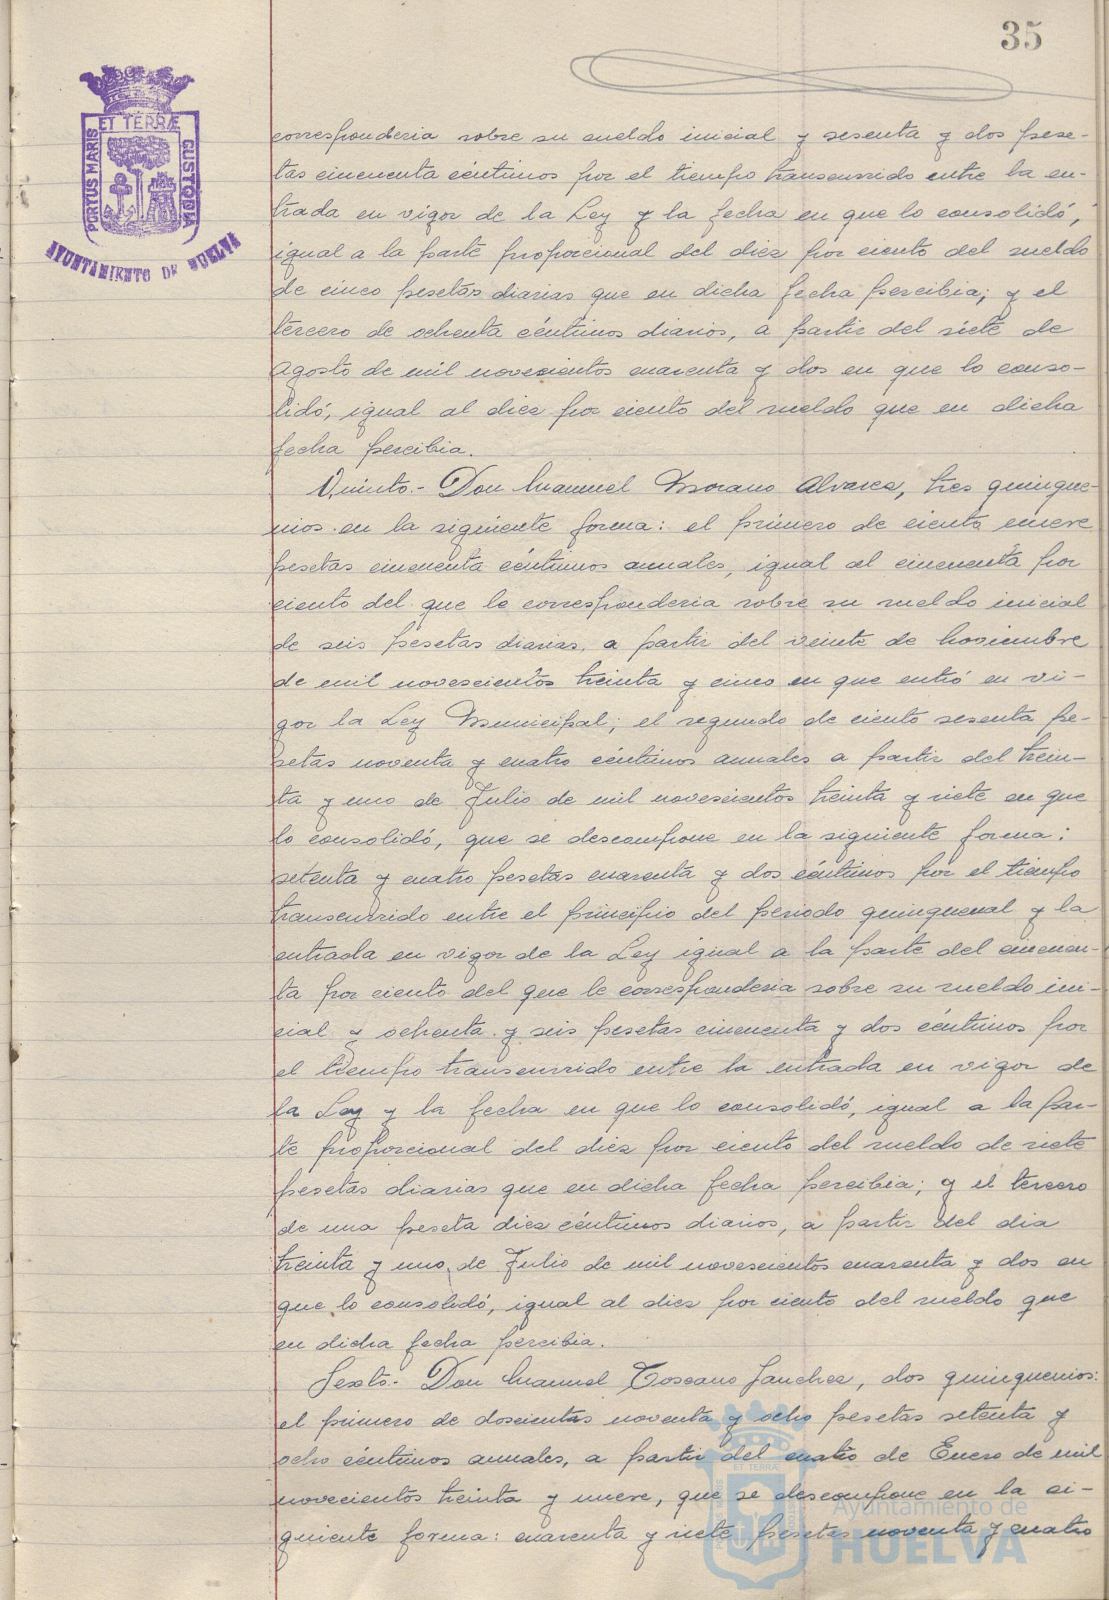 35
PORTUS MARIS
ET TERRÆ
CUSTODIA
AYUNTAMIENTO DE HUELVA
corresponderia sobre su sueldo inicial y sesenta y dos pese-
tas cincuenta céntimos por el tiempo transcurrido entre la en-
trada en vigor de la Ley y la fecha en que lo consolidó,
igual a la parte proporcional del diez por ciento del sueldo
de cinco pesetas diarias que en dicha fecha percibia; y el
tercero de ochenta céntimos diarios, a partir del siete de
Agosto de mil novecientos cuarenta y dos en que lo conso-
lidó, igual al diez por ciento del sueldo que en dicha
fecha percibia.
Quinto.- Don Manuel Morano Alvarez, tres quinque-
nios en la siguiente forma: el primero de ciento nueve
pesetas cincuenta céntimos anuales, igual al cincuenta por
ciento del que le corresponderia sobre su sueldo inicial
de seis pesetas diarias, a partir del veinte de Noviembre
de mil novescientos treinta y cinco en que entró en vi-
gor la Ley Municipal; el segundo de ciento sesenta pe-
setas noventa y cuatro céntimos anuales a partir del trein-
ta y uno de Julio de mil novescientos treinta y siete en que
lo consolidó, que se descompone en la siguiente forma:
setenta y cuatro pesetas cuarenta y dos céntimos por el tiempo
transcurrido entre el principio del periodo quinquenal y la
entrada en vigor de la Ley igual a la parte del cincuen-
ta por ciento del que le corresponderia sobre su sueldo ini-
cial y ochenta y seis pesetas cincuenta y dos céntimos por
el tiempo transcurrido entre la entrada en vigor de
la Ley y la fecha en que lo consolidó, igual a la par-
te proporcional del diez por ciento del sueldo de siete
pesetas diarias que en dicha fecha percibia; y el tercero
de una peseta diez céntimos diarios, a partir del dia
treinta y uno de Julio de mil novescientos cuarenta y dos en
que lo consolidó, igual al diez por ciento del sueldo que
en dicha fecha percibia.
Sexto.- Don Manuel Toscano Sanchez, dos quinquenios:
el primero de doscientas noventa y ocho pesetas setenta y
ocho céntimos anuales, a partir del cuatro de Enero de mil
novecientos treinta y nueve, que se descompone en la si-
guiente forma: cuarenta y siete pesetas noventa y cuatro
Ayuntamiento de
HUELVA